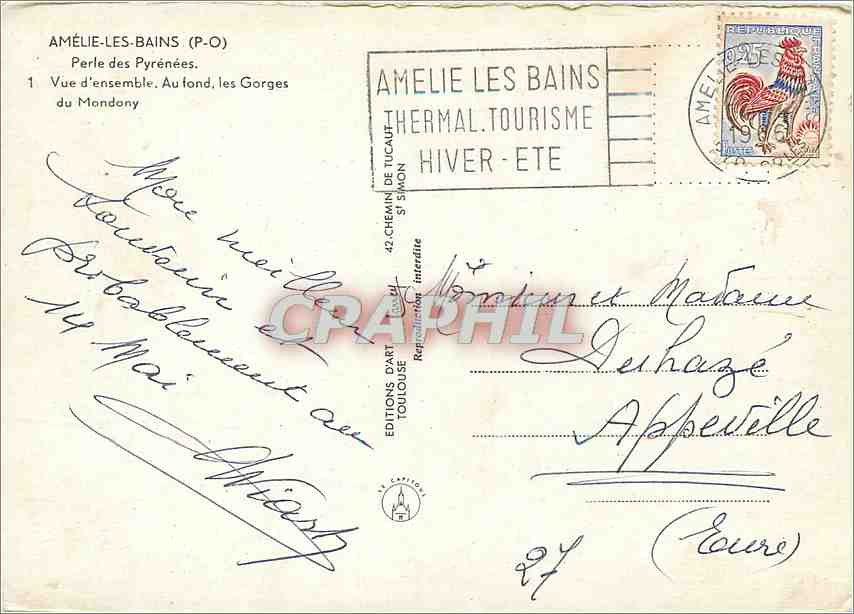 AMÉLIE-LES-BAINS (P-O)
Perle des Pyrénées.
1 Vue d'ensemble. Au fond, les Gorges
du Mondony
AMELIE LES BAINS
THERMAL.TOURISME
HIVER - ETE
REPUBLIQUE FRANÇAISE
0,25
POSTES
AMELIE-LES
Mon meilleur
souvenir et
probablement au
14 Mai
EDITIONS D'ART 42.CHEMIN DE TUCAUT
TOULOUSE St SIMON
Reproduction interdite
LE CAPITOLE
CPARAPHIL
Monsieur et Madame
Duhazé
Appeville
(Eure)
27